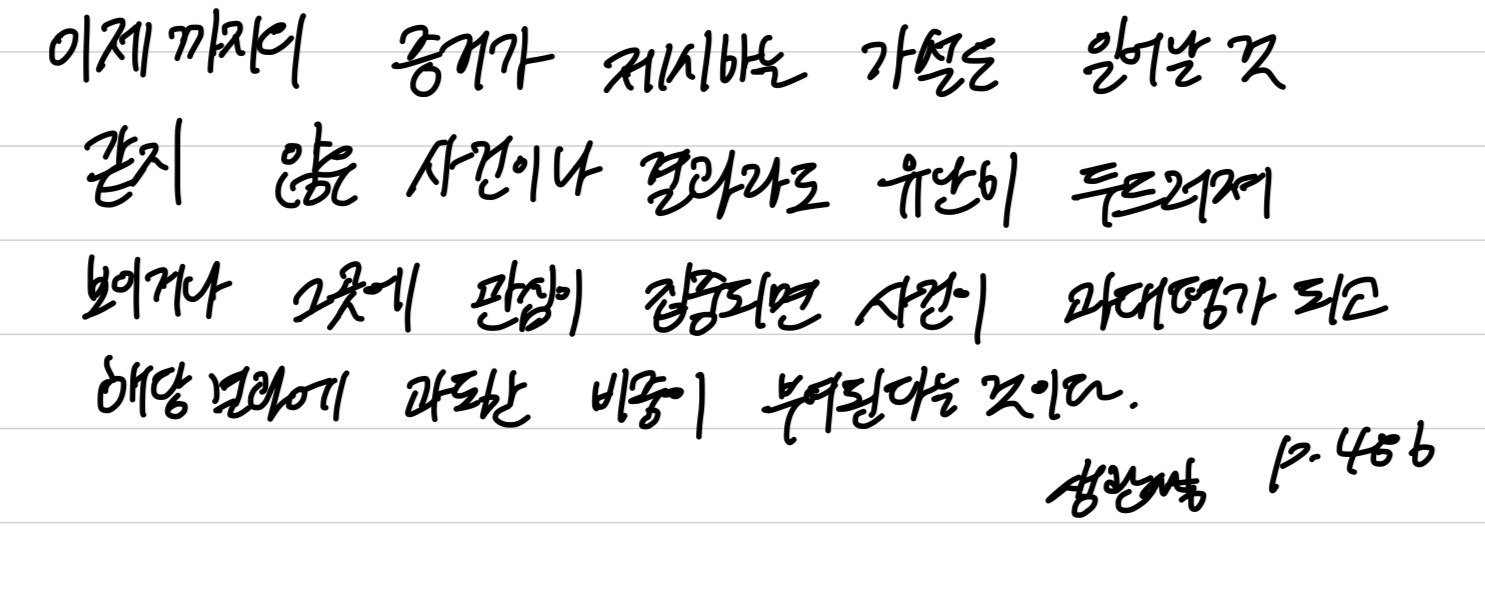 이제까지의 증거가 제시하는 가설은 일어날 것
같지 않은 사건이나 결과라도 유난히 두드러져
보이거나 그곳에 관심이 집중되면 사건이 과대평가 되고
해당 결과에 과도한 비중이 부여된다는 것이다.
p. 486